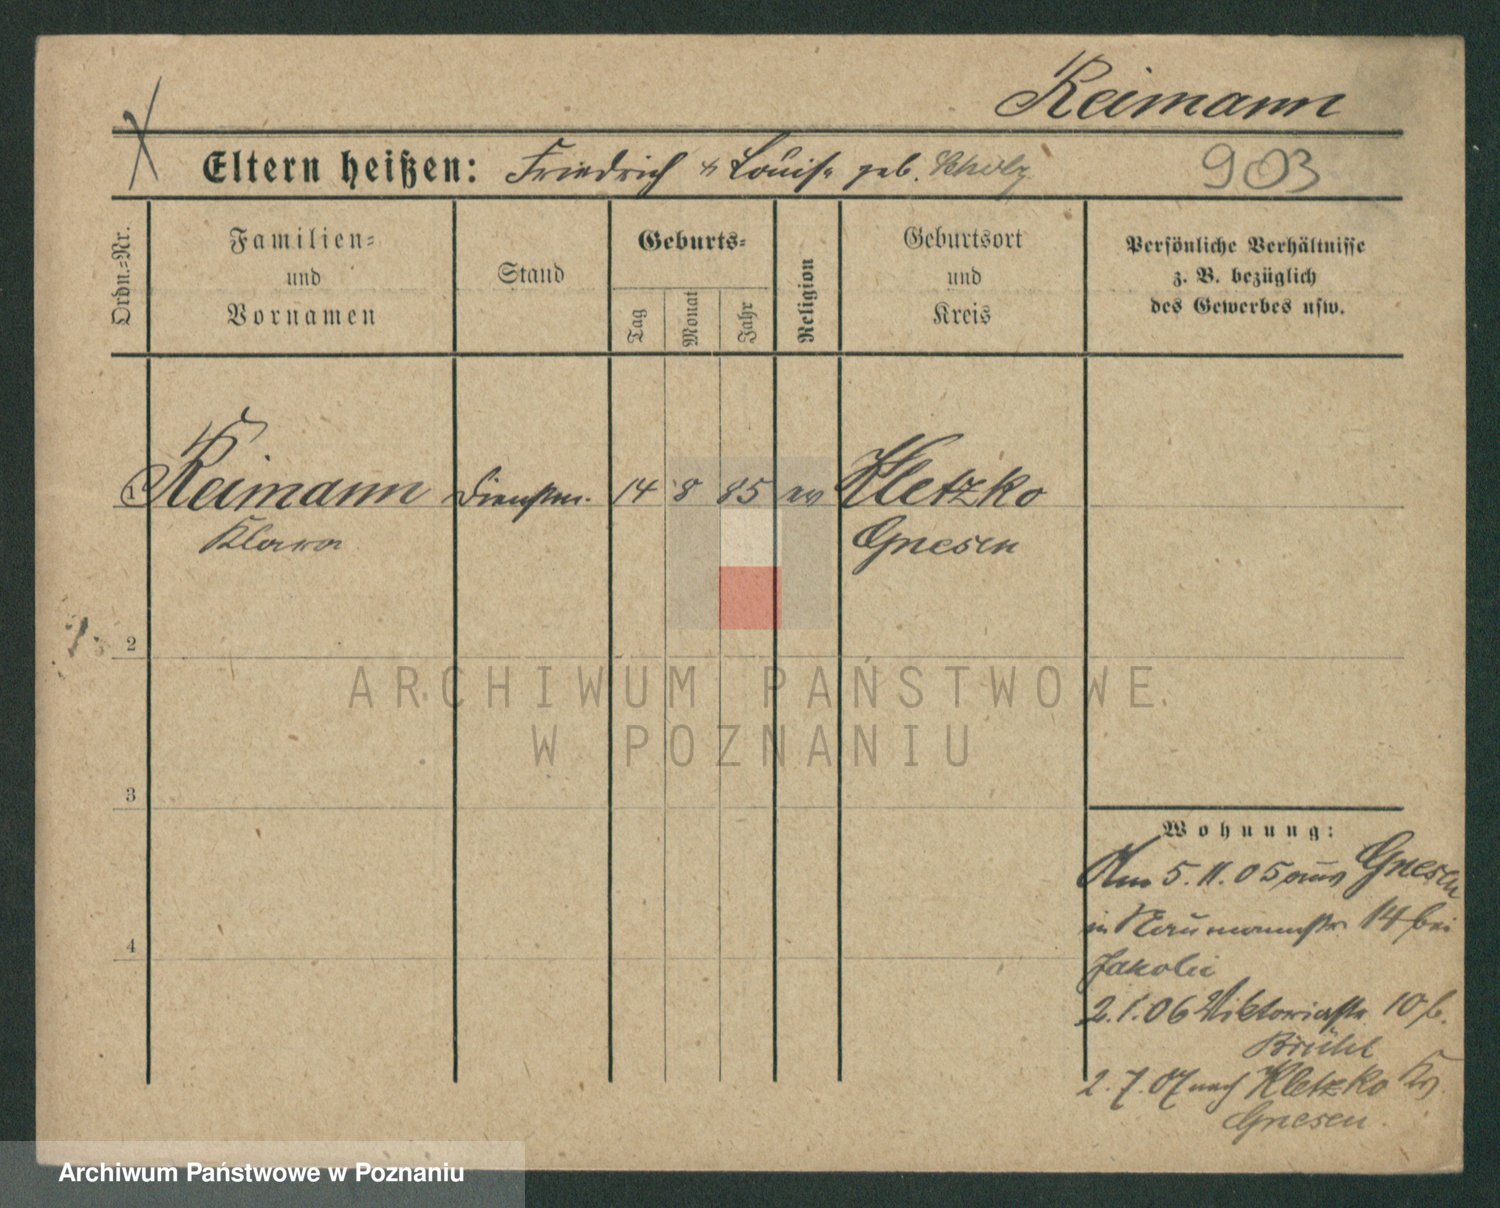 Reimann
Eltern heißen: Friedrich u Louise geb. Scholz
903
Ordn.-Nr.
Familien-
und
Vornamen
Stand
Geburts-
Tag
Monat
Jahr
Religion
Geburtsort
und
Kreis
Persönliche Verhältnisse
z. B. bezüglich
des Gewerbes usw.
1 Reimann Dienstm. 14 8 85 ev Kletzko
Klara Gnesen
2
ARCHIWUM PAŃSTWOWE
W POZNANIU
3
Wohnung:
Am 5.11.05 aus Gnesen
in Naumannstr. 14 bei
2.1.06 Viktoriastr. 10 b.
Brühl
2.7.07 nach Kletzko Kr.
Gnesen.
4
Archiwum Państwowe w Poznaniu